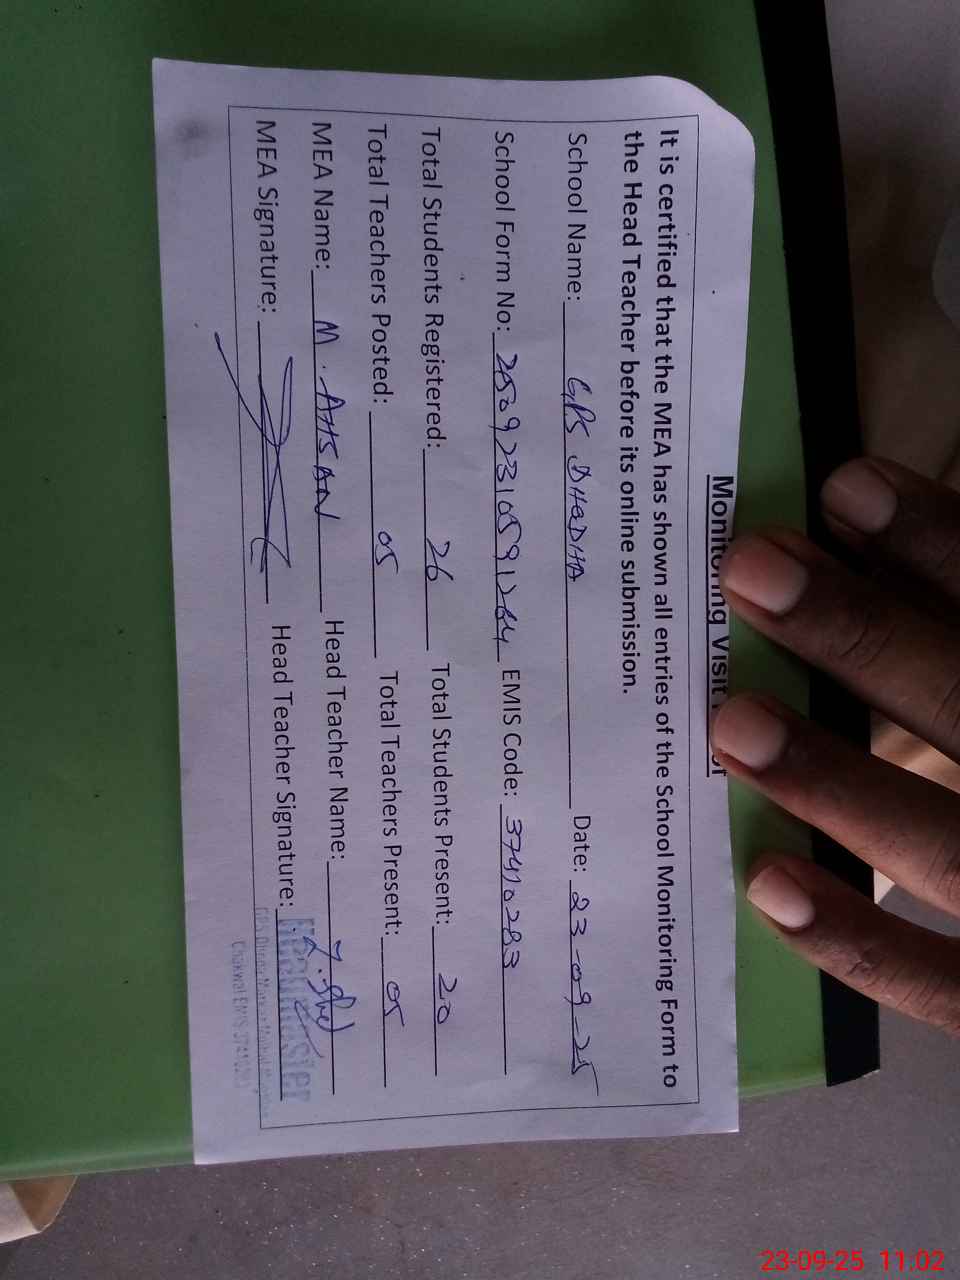 Monitoring Visit
It is certified that the MEA has shown all entries of the School Monitoring Form to
the Head Teacher before its online submission.
School Name: GPS DHODHA Date: 23-09-25
School Form No: EMIS Code: 37410283
Total Students Registered: 26 Total Students Present: 20
Total Teachers Posted: 05 Total Teachers Present: 05
MEA Name: M. AHSAN Head Teacher Name:
MEA Signature: Head Teacher Signature:
Headmaster
Chakwal EMIS 37410283
23-09-25 11:02